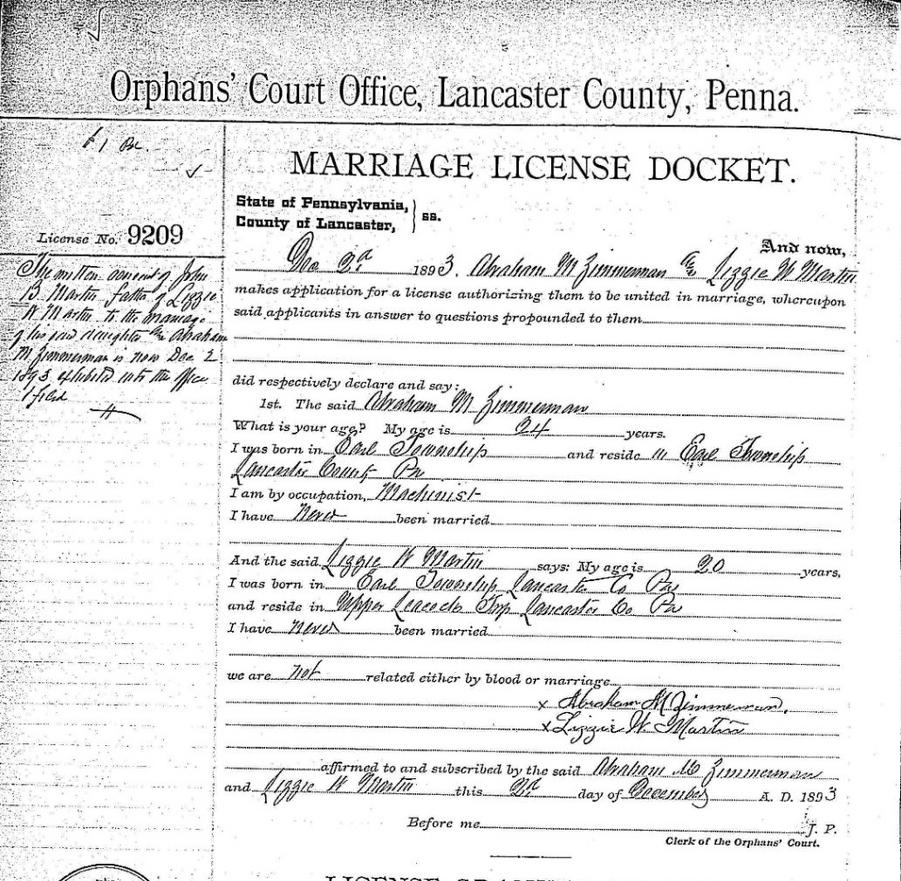 Orphans' Court Office, Lancaster County, Penna.
MARRIAGE LICENSE DOCKET.
State of Pennsylvania,
County of Lancaster,
} ss.
License No. 9209
The written consent of John
B. Martin father of Lizzie
W Martin to the marriage
of his said daughter to Abraham
M Zimmerman is now Dec 2
1893 exhibited into the office
& filed
And now,
Dec 2d 1893. Abraham M Zimmerman & Lizzie W Martin
makes application for a license authorizing them to be united in marriage, whereupon
said applicants in answer to questions propounded to them
did respectively declare and say:
1st. The said Abraham M Zimmerman
What is your age? My age is 24 years.
I was born in Earl Township and reside in Earl Township
Lancaster County Pa
I am by occupation, Machinist
I have Never been married
And the said Lizzie W Martin says: My age is 20 years,
I was born in Earl Township Lancaster Co Pa
and reside in Upper Leacock Twp Lancaster Co Pa
I have never been married
we are not related either by blood or marriage
x Abraham M Zimmerman.
x Lizzie W. Martin
affirmed to and subscribed by the said Abraham M Zimmerman
and Lizzie W Martin this 2d day of December A. D. 1893
Before me J. P.
Clerk of the Orphans' Court.